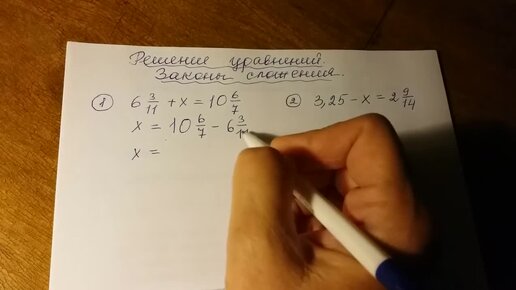 Решение уравнений.
Законы сложения.
① 6 3/11 + x = 10 6/7
x = 10 6/7 - 6 3/11
x =
② 3,25 - x = 2 9/14